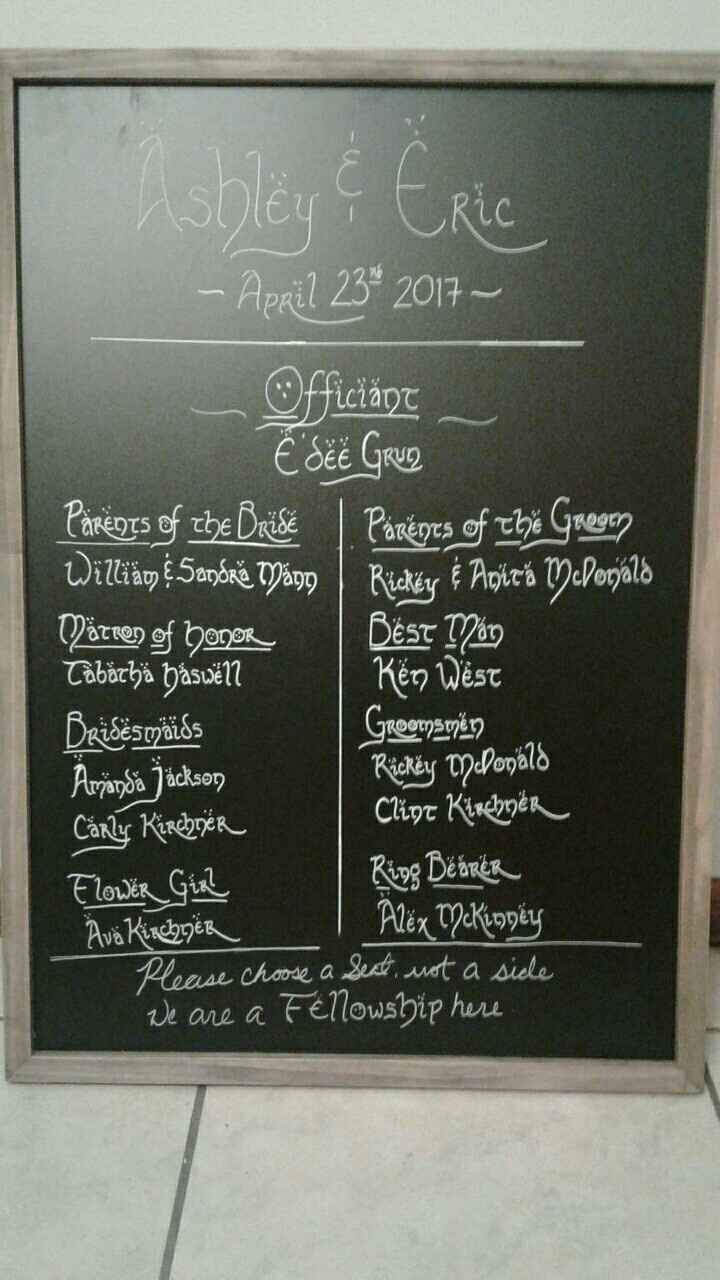 Ashley & Eric
~ April 23rd 2017 ~
Officiant
E'dee Grun
Parents of the Bride
William & Sandra Mann
Matron of Honor
Tabatha Haswell
Bridesmaids
Amanda Jackson
Carly Kirchner
Flower Girl
Ava Kirchner
Parents of the Groom
Rickey & Anita McDonald
Best Man
Ken West
Groomsmen
Rickey McDonald
Clint Kirchner
Ring Bearer
Alex McKinney
Please choose a Seat, not a side
We are a Fellowship here